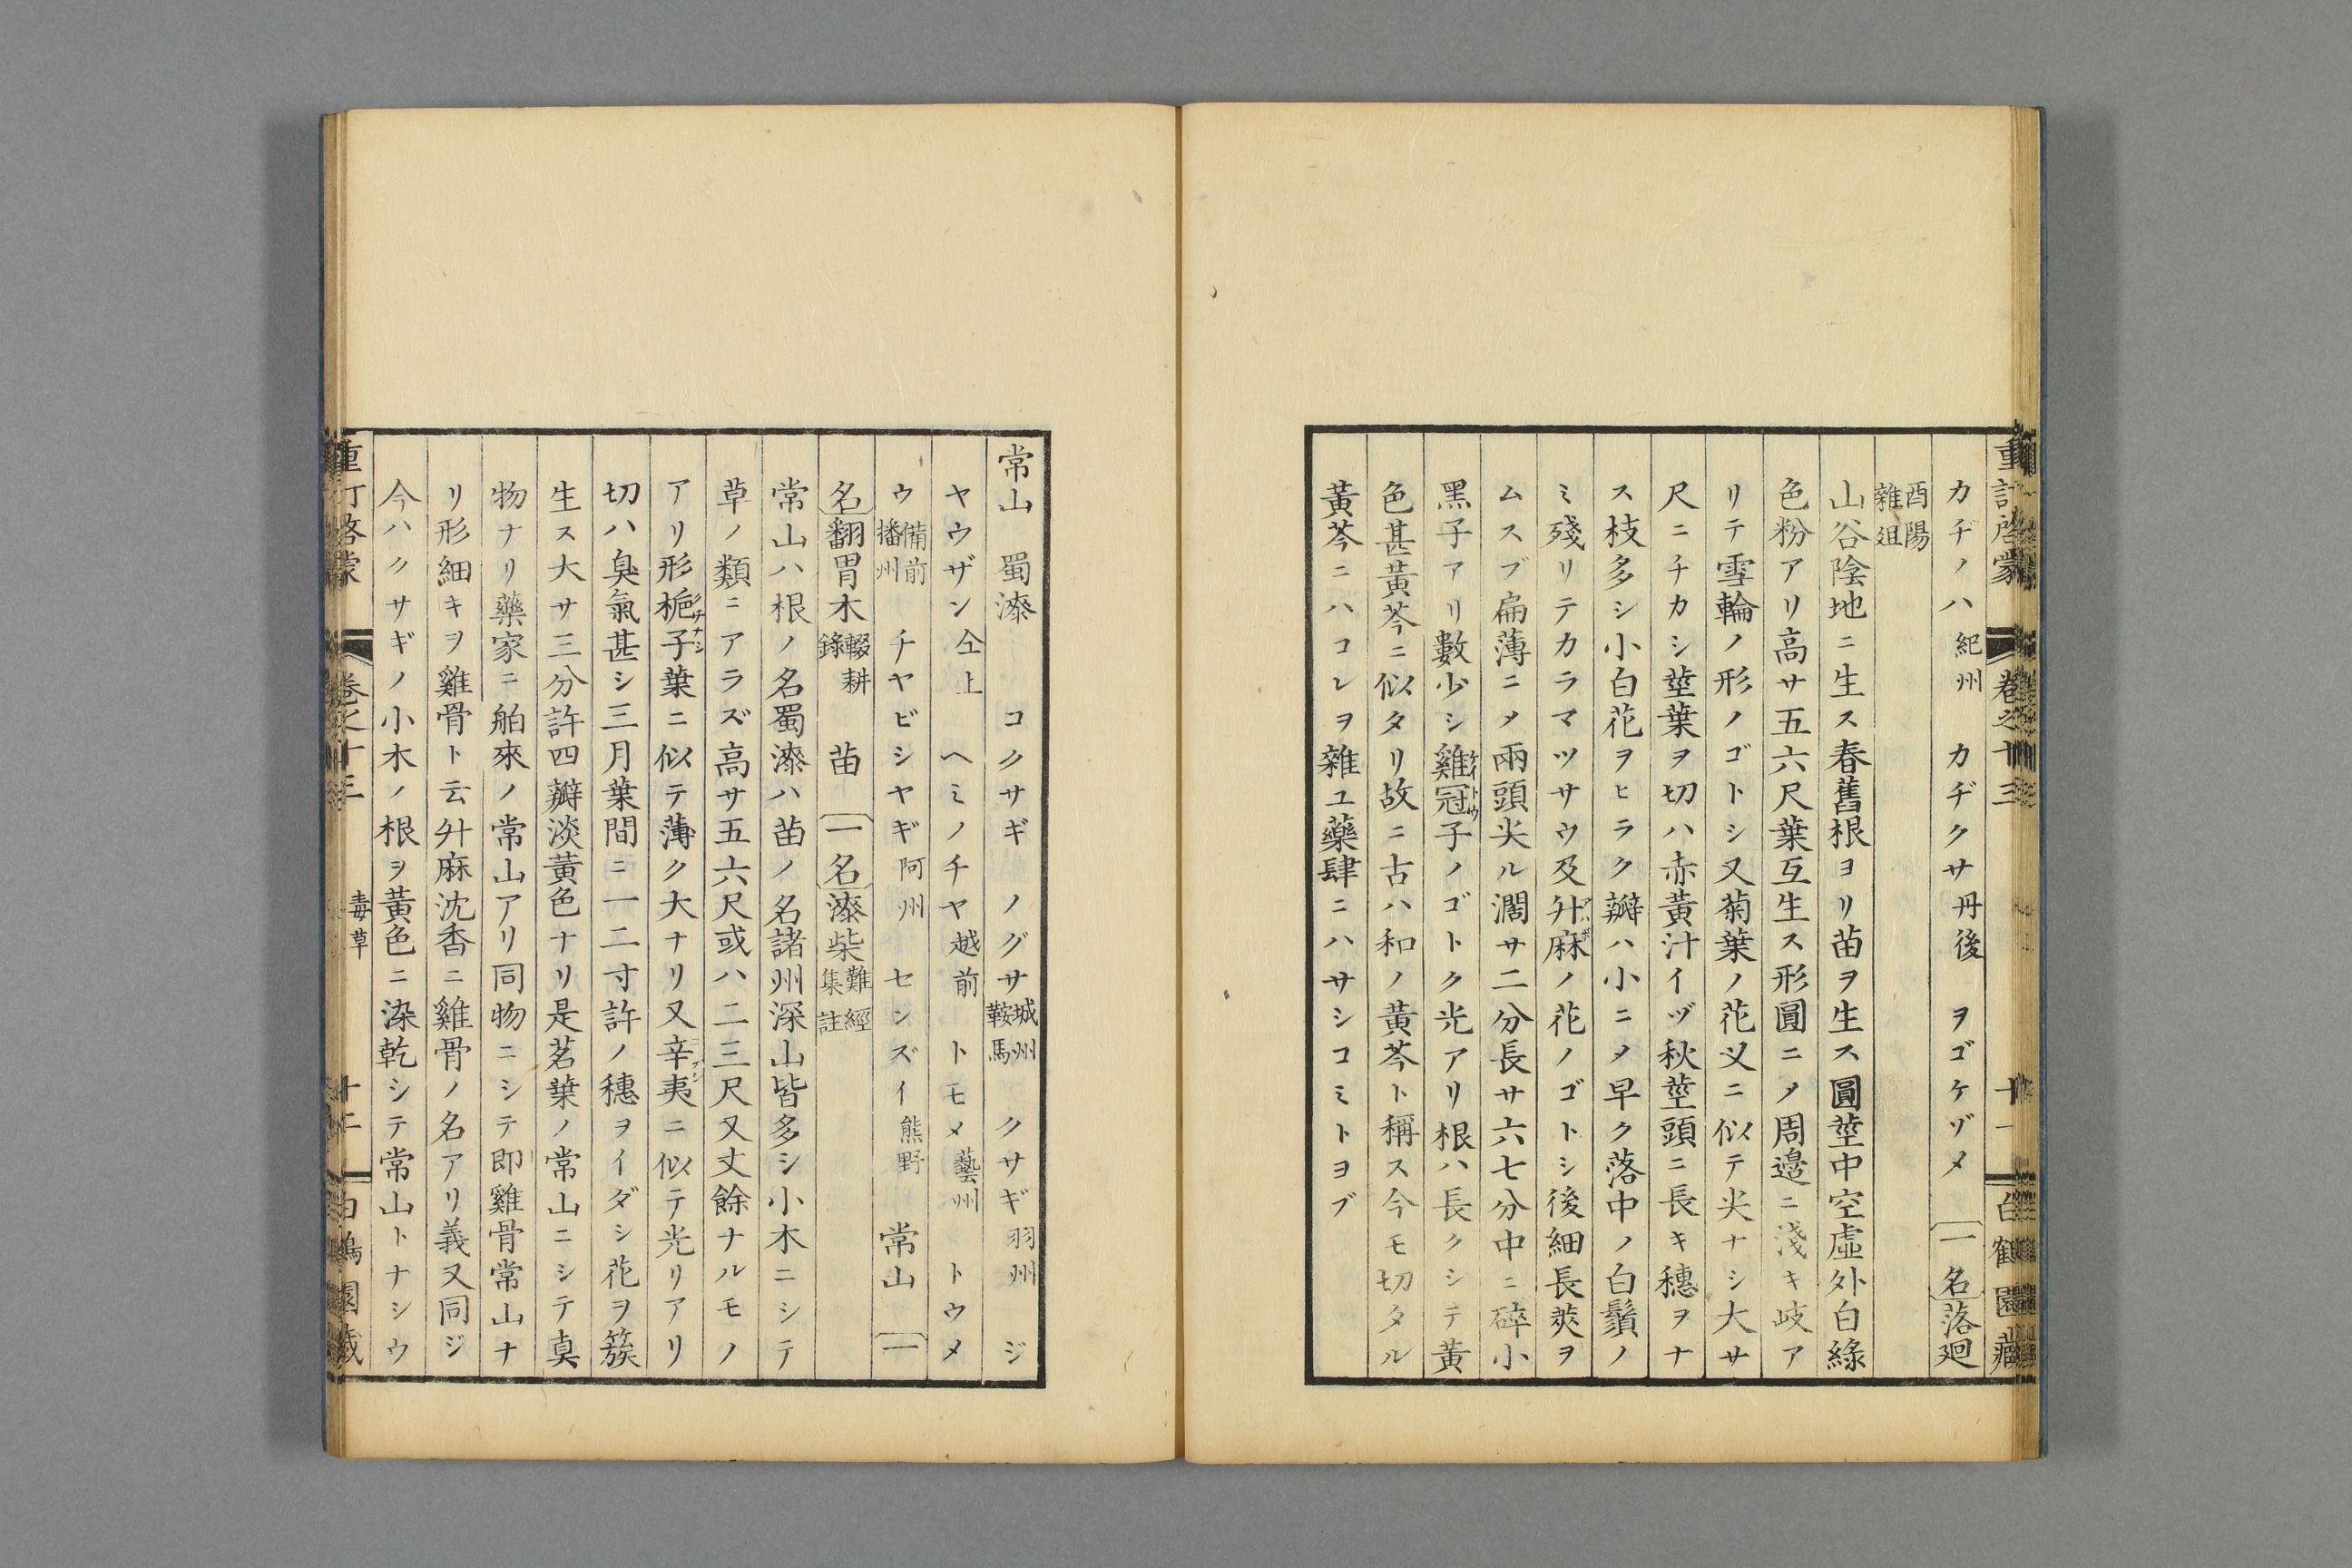 カヂノハ 紀州 カヂクサ 丹後 ヲゴケヅメ 一名 落廻
酉陽雜俎
山谷陰地ニ生ス春舊根ヨリ苗ヲ生ス圓莖中空虛外白綠
色粉アリ高サ五六尺葉互生ス形圓ニㄨ周邉ニ淺キ岐ア
リテ雪輪ノ形ノゴトシ又菊葉ノ花乂ニ似テ尖ナシ大サ
尺ニチカシ莖葉ヲ切ハ赤黃汁イヅ秋莖頭ニ長キ穗ヲナ
ス枝多シ小白花ヲヒラク瓣ハ小ニㄨ早ク落中ノ白鬚ノ
ミ殘リテカラマツサウ及升麻ノ花ノゴトシ後細長莢ヲ
ムスブ扁薄ニㄨ兩頭尖ル濶サ二分長サ六七分中ニ碎小
黑子アリ數少シ雞冠子ノゴトク光アリ根ハ長クシテ黃
色甚黃芩ニ似タリ故ニ古ハ和ノ黃芩ト稱ス今モ切タル
黃芩ニハコレヲ雜ユ藥肆ニハサシコミトヨブ
常山 蜀漆 コクサギ ノグサ 城州鞍馬 クサギ 羽州 ジ
ヤウザン 仝上 ヘミノチヤ 越前 トモメ 藝州 トウメ
ウ 備前播州 チヤビシヤギ 阿州 センズイ 熊野 常山 一
名 翻胃木 輟耕錄 苗 一名 漆柴 難經集註
常山ハ根ノ名蜀漆ハ苗ノ名諸州深山皆多シ小木ニシテ
草ノ類ニアラズ高サ五六尺或ハ二三尺又丈餘ナルモノ
アリ形梔子葉ニ似テ薄ク大ナリ又辛夷ニ似テ光リアリ
切ハ臭氣甚シ三月葉間ニ一二寸許ノ穗ヲイダシ花ヲ簇
生ス大サ三分許四瓣淡黃色ナリ是茗葉ノ常山ニシテ真
物ナリ藥家ニ舶來ノ常山アリ同物ニシテ即雞骨常山ナ
リ形細キヲ雞骨ト云升麻沈香ニ雞骨ノ名アリ義又同ジ
今ハクサギノ小木ノ根ヲ黃色ニ染乾シテ常山トナシウ
毒草